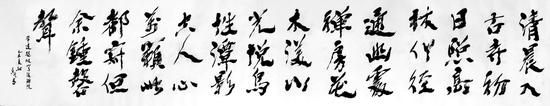 清晨入
古寺初
日照高
林竹徑
通幽處
禪房花
木深山
光悦鳥
性潭影
空人心
萬籟此
都寂但
余鐘磬
聲
常建題破山寺後禪院